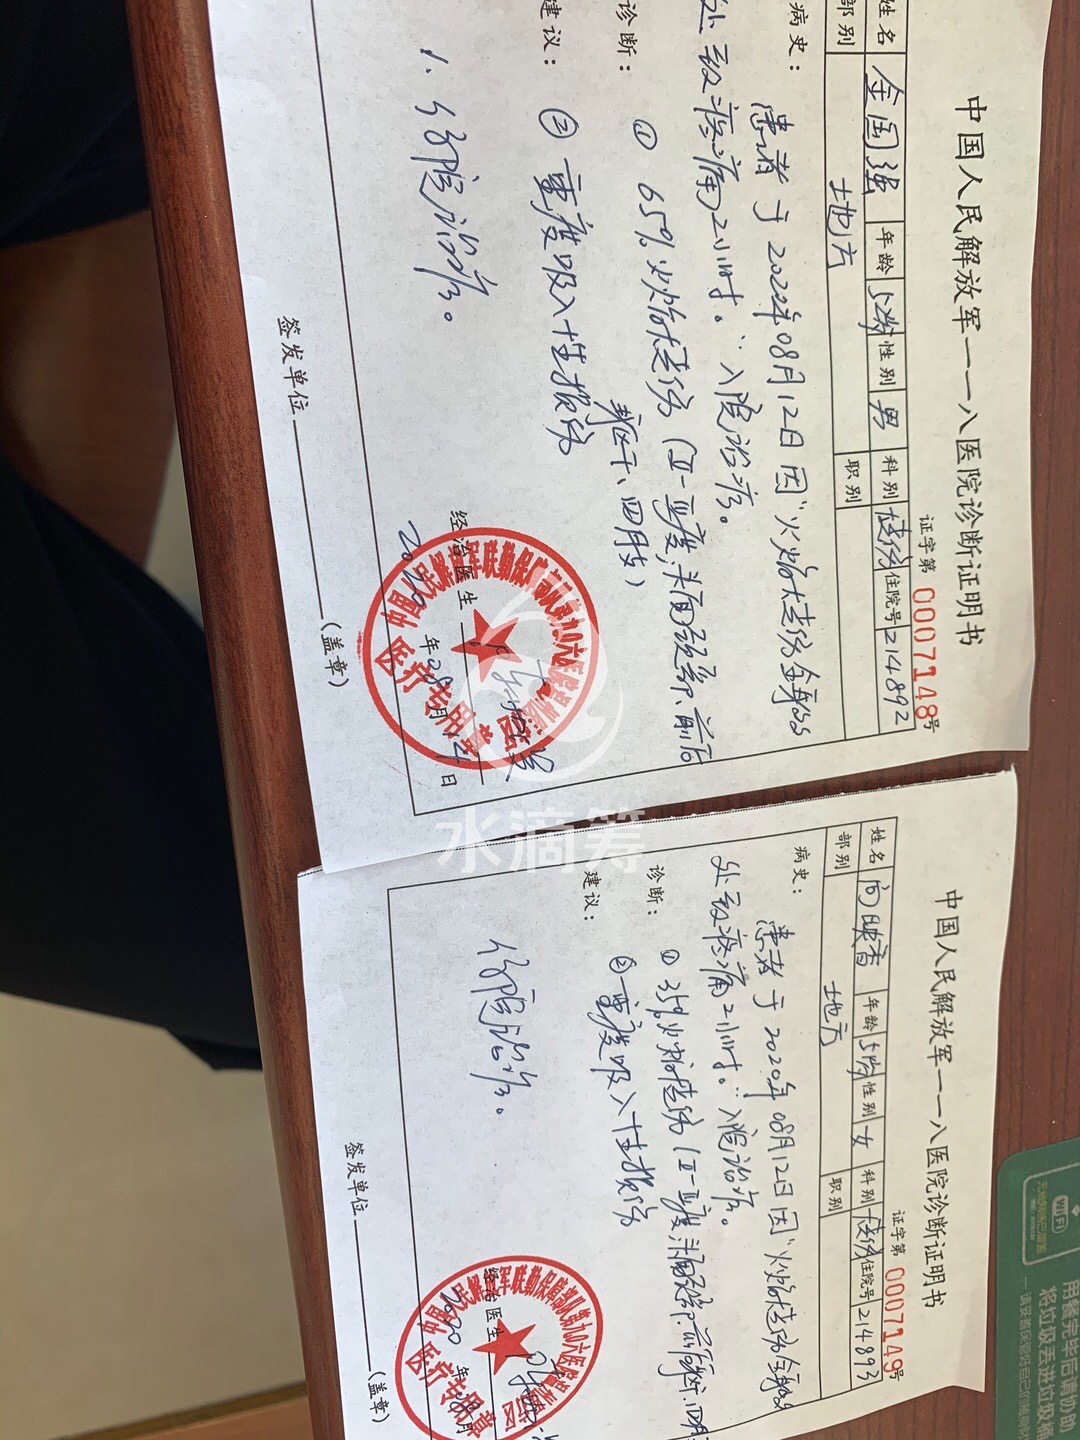 中国人民解放军一一八医院诊断证明书
证字第 0007148号
姓名 金国强 年龄 52岁 性别 男 科别 烧伤 住院号 214892
部别 地方 职别
病史： 患者于2020年08月12日因"火焰烧伤全身多
处致疼痛2小时。"入院治疗。
诊断： ① 65%火焰烧伤（Ⅱ-Ⅲ度，头面颈部、前后
躯干、四肢）
② 重度吸入性损伤
建议：
1. 住院治疗。
经治医生
2020年08月14日
签发单位（盖章）
医疗专用章
中国人民解放军一一八医院诊断证明书
证字第 0007149号
姓名 向映香 年龄 性别 女 科别 烧伤 住院号 214893
部别 地方 职别
病史： 患者于2020年08月12日因"火焰烧伤全身多
处致疼痛2小时。"入院治疗。
诊断： ① 35%火焰烧伤（Ⅱ-Ⅲ度，头面颈部、
② 重度吸入性损伤
建议：
住院治疗。
经治医生
2020年08月
签发单位（盖章）
医疗专用章
水滴筹
WiFi
用餐完毕后请协助
将垃圾丢进垃圾桶